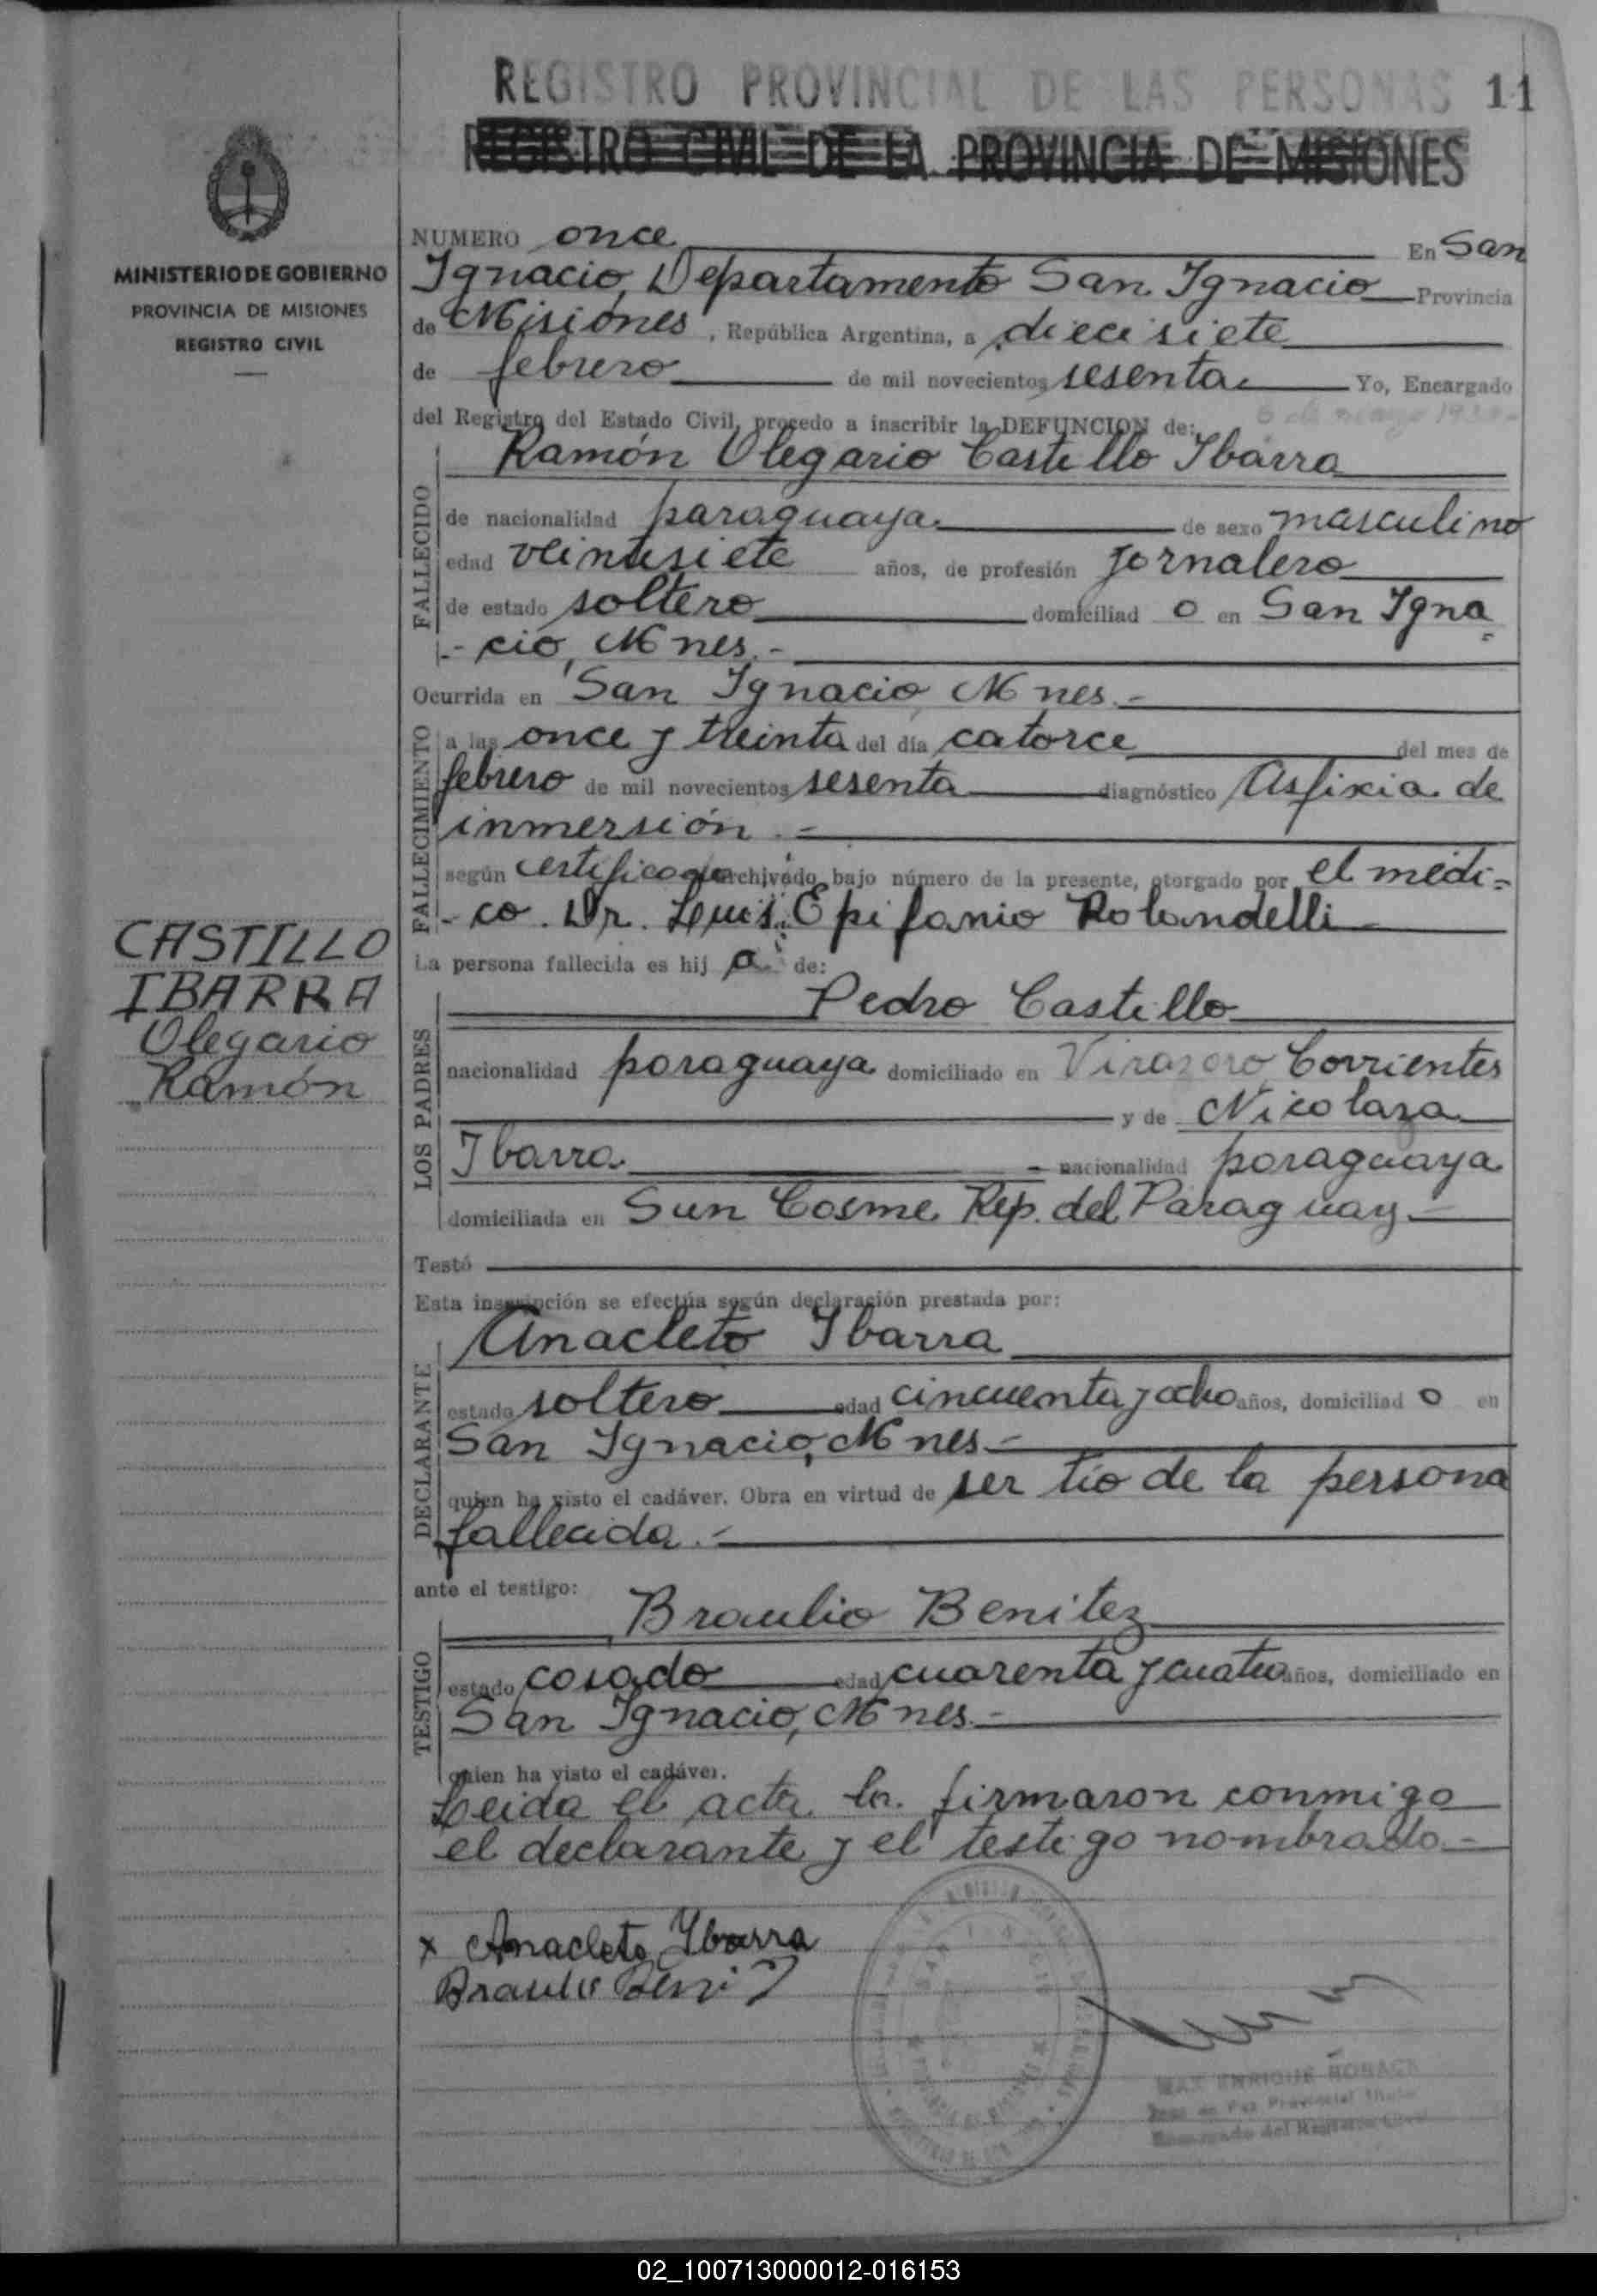 REGISTRO PROVINCIAL DE LAS PERSONAS 11
REGISTRO CIVIL DE LA PROVINCIA DE MISIONES
MINISTERIO DE GOBIERNO
PROVINCIA DE MISIONES
REGISTRO CIVIL
CASTILLO
IBARRA
Olegario
Ramón
NUMERO once En San
Ignacio, Departamento San Ignacio Provincia
de Misiones, República Argentina, a diecisiete
de febrero de mil novecientos sesenta Yo, Encargado
del Registro del Estado Civil, procedo a inscribir la DEFUNCION de:
Ramón Olegario Castillo Ibarra
FALLECIDO
de nacionalidad paraguaya de sexo masculino
edad veintisiete años, de profesión jornalero
de estado soltero domiciliad o en San Igna
- cio, Mnes.-
Ocurrida en San Ignacio Mnes.-
FALLECIMIENTO
a las once y treinta del día catorce del mes de
febrero de mil novecientos sesenta diagnóstico Asfixia de
inmersión.-
según certificado archivado bajo número de la presente, otorgado por el médi-
- co. Dr. Luis Epifanio Rolandelli
La persona fallecida es hij o de:
LOS PADRES
Pedro Castillo
nacionalidad paraguaya domiciliado en Virasoro Corrientes
y de Nicolasa
Ibarra nacionalidad paraguaya
domiciliada en San Cosme Rep. del Paraguay
Testó
Esta inscripción se efectúa según declaración prestada por:
DECLARANTE
Anacleto Ibarra
estado soltero edad cincuenta y ocho años, domiciliad o en
San Ignacio, Mnes.-
quien ha visto el cadáver. Obra en virtud de ser tío de la persona
fallecida.-
ante el testigo:
TESTIGO
Braulio Benitez
estado casado edad cuarenta y cuatro años, domiciliado en
San Ignacio, Mnes.-
quien ha visto el cadáver.
Leida el acta la firmaron conmigo
el declarante y el testigo nombrado.-
x Anacleto Ibarra
Braulio
MAX ENRIQUE
02_100713000012-016153